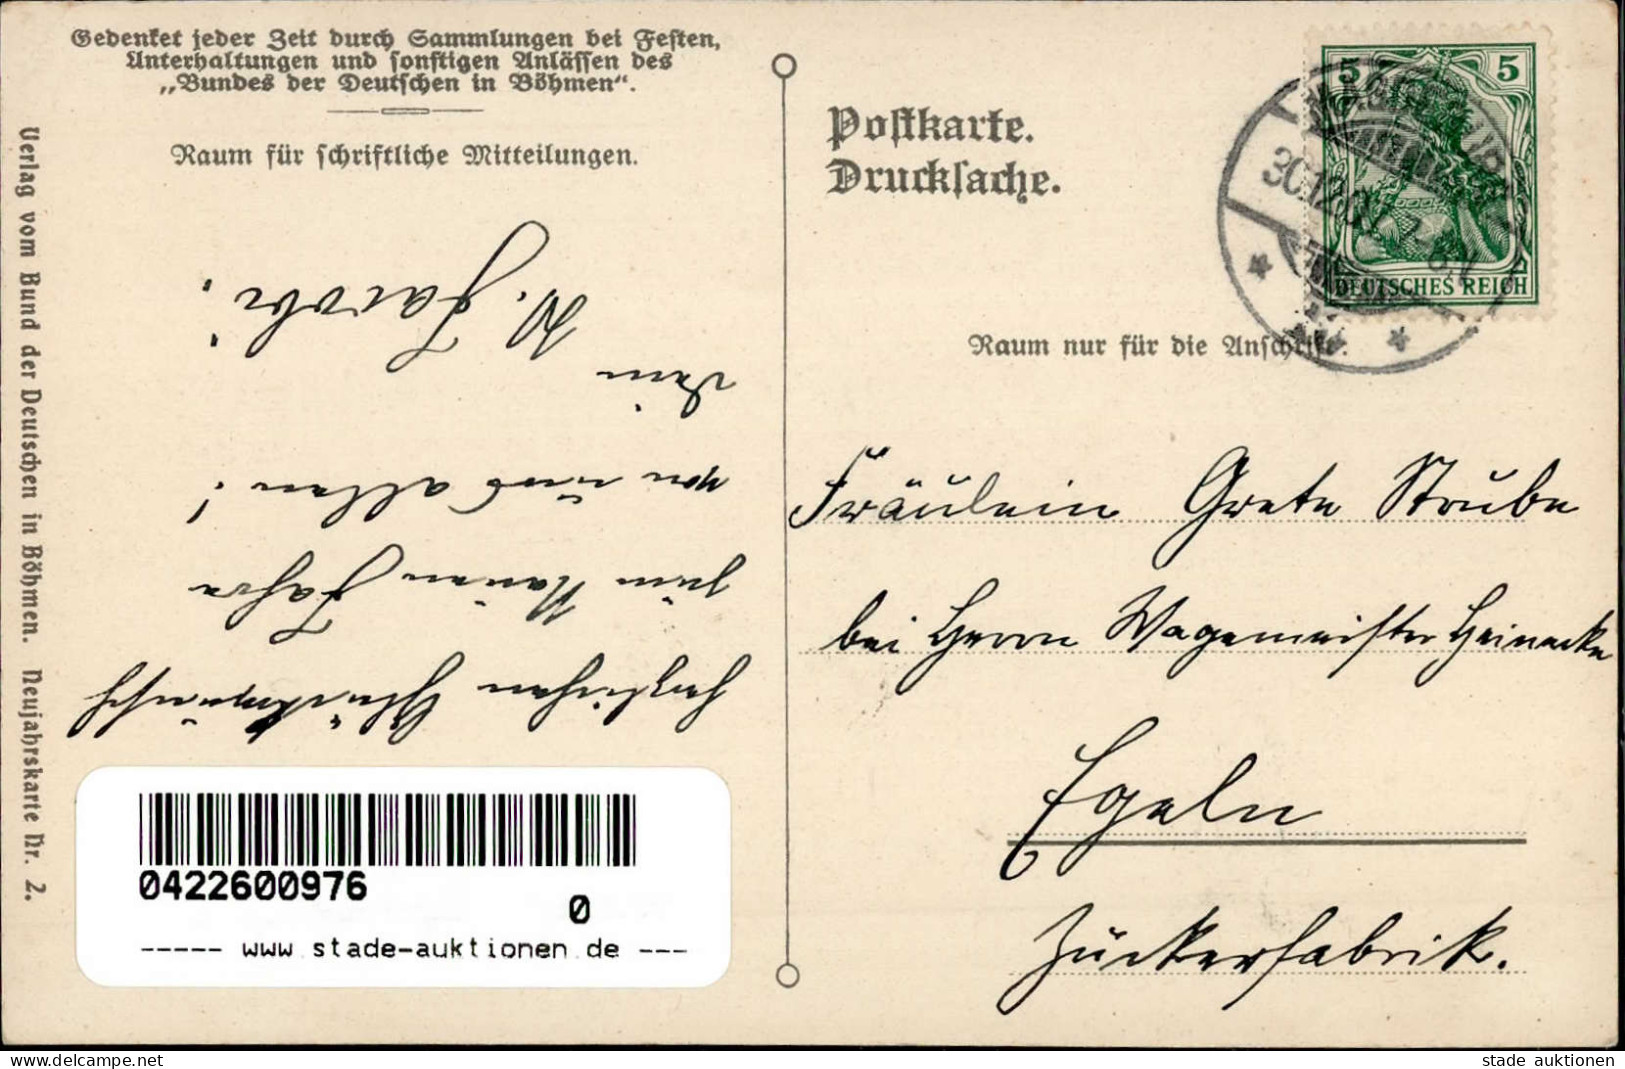 Gedenket jeder Zeit durch Sammlungen bei Festen,
Unterhaltungen und sonstigen Anlässen des
„Bundes der Deutschen in Böhmen“.
Raum für schriftliche Mitteilungen.
Herzlichen Glückwunsch
zum Neuen Jahre
von uns allen!
Dein
W. Jacobi.
Verlag vom Bund der Deutschen in Böhmen. Neujahrskarte Nr. 2.
0422600976
0
----- www.stade-auktionen.de ---
Postkarte.
Drucksache.
5 5
DEUTSCHES REICH
30.12.
Raum nur für die Anschrift.
Fräulein Grete Strube
bei Herrn Wagemeister Heinecke
Egeln
Zuckerfabrik.
www.delcampe.net
stade auktionen